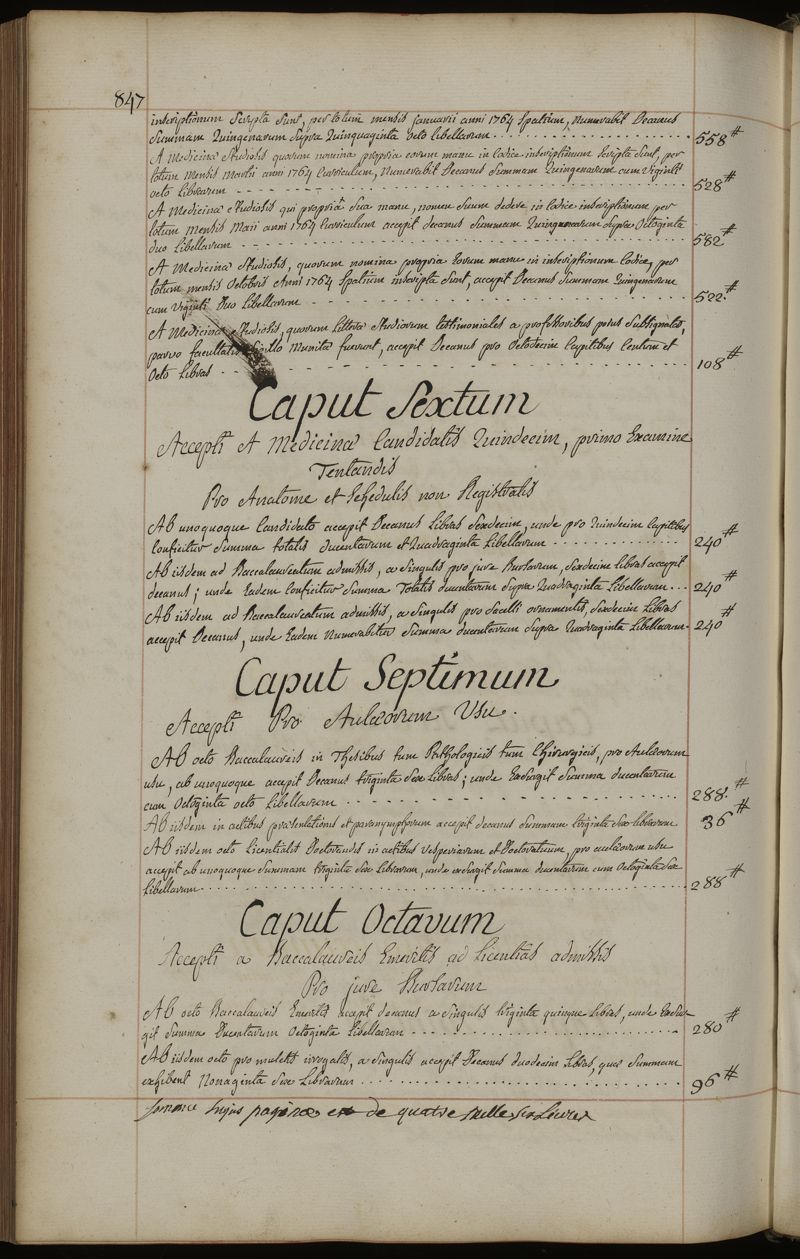 847
inscriptionum Scripta Sunt, per totum mensis januarii anni 1764 Spatium, Numerabit Decanus
Summam Quingenarum Supra Quinquaginta octo libellarum 558#
A Medicinæ Studiosis quorum nomina propria eorum manu in Codice inscriptionum Scripta Sunt, per
totum Mensis Martii anni 1764 Curriculum, Numerabit Decanus Summam Quingenarum cum Viginti
octo Librarum 528#
A Medicinæ Studiosis qui propriâ Sua manu, nomen Suum dedere in Codice inscriptionum per
totum Mensis Maii anni 1764 Curriculum accepit decanus Summam Quingenarum Supra Octoginta
duo Libellarum 582#
A Medicinæ Studiosis, quorum nomina propria Eorum manu in inscriptionum Codice, per
totum mensis Octobris Anni 1764 Spatium inscripta Sunt, accepit Decanus Summam Quingenarum
cum Viginti Duo Libellarum 522#
A Medicinæ Studiosis, quorum Litteræ Studiorum testimoniales a professoribus prius Subsignatæ,
parvo facultatis Sigillo Munitæ fuerunt, accepit Decanus pro Octodecim Capitibus Centum et
Octo Libras 108#
Caput Sextum
Accepti A Medicinæ Candidatis Quindecim, primo Examine
Tentandis
Pro Anatome et Schedulis non Registratis
Ab unoquoque Candidato accepit Decanus Libras Sexdecim, unde pro Quindecim Capitibus
Conficitur Summa totalis ducentarum et Quadraginta Libellarum 240#
Ab iisdem ad Baccalaureatum admissis, a Singulis pro jure Bursarum, Sexdecim libras accepit
decanus; unde Eadem Conficitur Summa Totalis ducentarum Supra Quadraginta Libellarum 240#
Ab iisdem ad Baccalaureatum admissis, a Singulis pro Sacelli ornamentis, Sexdecim Libras
accepit Decanus, unde Eadem Numerabitur Summa ducentarum Supra Quadraginta Libellarum 240#
Caput Septimum
Accepti Pro Aulæorum Usu.
Ab octo Baccalaureis in Thesibus tum Pathologicis tum Chirurgicis, pro Aulæorum
usu, ab unoquoque accepit Decanus triginta Sex Libras; unde Exsurgit Summa ducentarum
cum Octoginta octo Libellarum 288#
Ab iisdem in actibus præsentationis et paranymphorum accepit decanus Summam triginta Sex librarum 36#
Ab iisdem octo Licentiatis Doctorandis in actibus Vesperiarum et Doctoratuum, pro aulæorum usu
accepit ab unoquoque Summam triginta Sex Librarum, unde exsurgit Summa ducentarum cum Octoginta Sex
Libellarum 288#
Caput Octavum
Accepti a Baccalaureis Emeritis ad Licentias admissis
Pro jure Bursarum
Ab octo Baccalaureis Emeritis accepit decanus a Singulis triginta quinque Libras, unde Exsur
git Summa Ducentarum Octoginta Libellarum 280#
Ab iisdem octo pro mulctis irrogatis, a Singulis accepit Decanus duodecim libras, quæ Summam
exhibent Nonaginta Sex Librarum 96#
Somme hujus paginæ de quatre mille six Livres